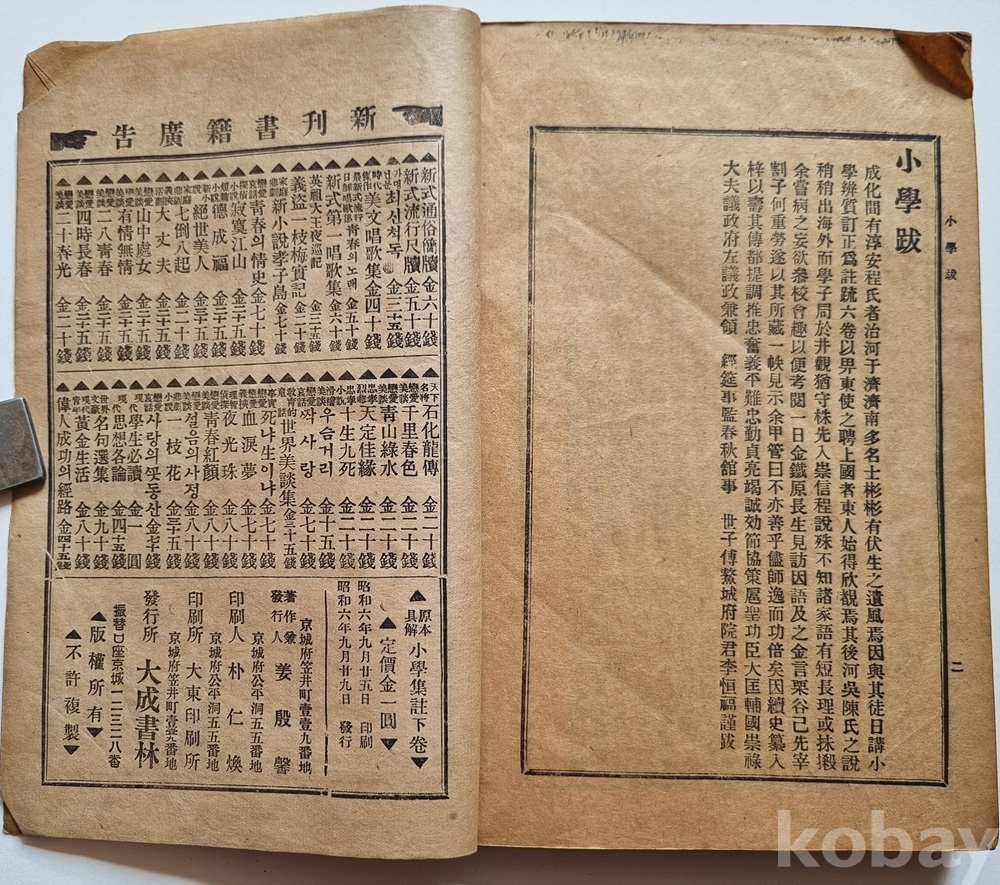 小學跋
成化間有淳安程氏者治河于濟濟南多名士彬彬有伏生之遺風焉因與其徒日講小
學辨質訂正爲註疏六卷以畀東使之聘上國者東人始得欣覩焉其後河吳陳氏之說
稍稍出海外而學子局於井觀猶守株先入崇信程說殊不知諸家語有短長理或抹摋
余嘗病之妄欲叅校會趣以便考閱一日金鐵原長生見訪因語及之金言栗谷已先宰
割子何重勞遂以其所藏一帙見示余甲管曰不亦善乎儘師逸而功倍矣因續史纂入
梓以壽其傳都提調推忠奮義平難忠勤貞亮竭誠効節協策扈聖功臣大匡輔國崇祿
大夫議政府左議政兼領 經筵事監春秋館事 世子傅鰲城府院君李恒福謹跋
小學跋
二
新刊書籍廣告
▲新式通俗簡牘 金六十錢
▲新式流行尺牘 金五十錢
최신척독 金三十五錢
▲時代美文唱歌集 金四十錢
靑春의노래 金五十錢
▲新式第一唱歌集 金六十錢
▲英祖大王夜巡記 金三十五錢
▲義盜一枝梅實記 金七十錢
▲家庭悲劇新小說孝子島 金七十錢
▲戀愛哀話靑春의情史 金七十錢
▲探偵小說寂寞江山 金三十五錢
▲短篇小說德成福 金三十五錢
▲新小說絕世美人 金三十五錢
▲家庭悲劇七倒八起 金三十五錢
▲活劇大丈夫 金三十五錢
▲戀愛美談山中處女 金三十五錢
▲戀愛美談有情無情 金三十五錢
▲戀愛美談二八靑春 金三十五錢
▲戀愛美談四時長春 金二十錢
▲戀愛美談二十春光 金二十錢
▲天下名將石化龍傳 金二十錢
▲戀愛美談千里春色 金二十錢
▲戀愛美談靑山綠水 金二十錢
▲忠孝烈都天定佳緣 金二十錢
▲忠孝小說十生九死 金二十錢
▲滑稽우슴거리 金十五錢
▲戀愛哀話짝사랑 金七十錢
▲敎育的童話世界美談集 金三十五錢
▲事實死냐生이냐 金七十錢
▲戀愛義俠血淚夢 金七十錢
▲探偵夜光珠 金八十錢
▲戀愛美談靑春紅顏 金八十錢
▲戀愛美談설음의사정 金八十錢
▲戀愛悲劇一枝花 金三十五錢
▲戀愛哀話사랑의꽃동산 金七十錢
▲現代學生必讀 金一圓
▲現代思想各論 金四十五錢
▲世界文豪名句選集 金九十錢
▲現代靑年黃金生活 金八十錢
▲偉人成功의經路 金四十五錢
▲原本具解小學集註下卷▼
▲定價金一圓▼
昭和六年九月廿五日 印刷
昭和六年九月廿九日 發行
京城府笠井町壹壹九番地
著作兼發行人 姜殷馨
京城府公平洞五五番地
印刷人 朴仁煥
京城府公平洞五五番地
印刷所 大東印刷所
京城府笠井町壹壹九番地
發行所 大成書林
振替口座京城一二三二八番
▲版權所有▼
▲不許複製▼
kobay